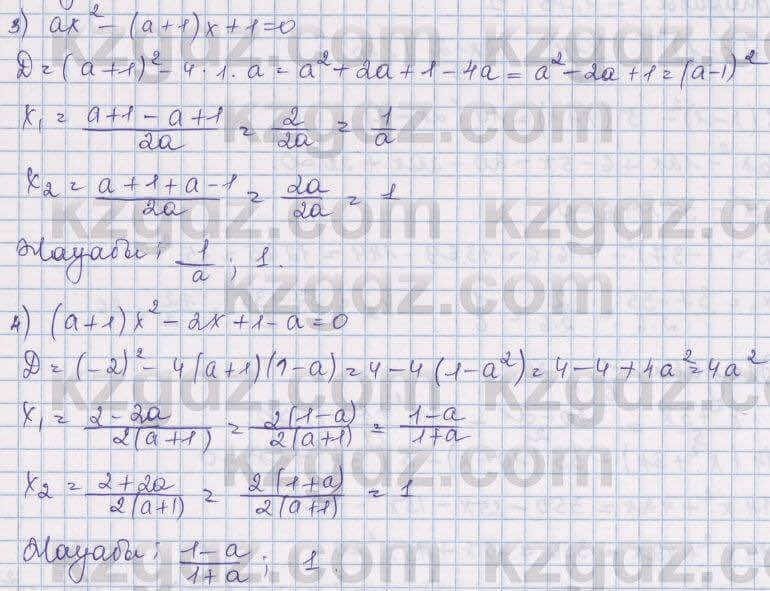 3) ax² - (a+1)x+1=0
D=(a+1)²-4·1·a=a²+2a+1-4a=a²-2a+1=(a-1)²
x₁ = (a+1-a+1)/(2a) = 2/(2a) = 1/a
x₂ = (a+1+a-1)/(2a) = 2a/(2a) = 1
Жауабы: 1/a; 1.
4) (a+1)x²-2x+1-a=0
D=(-2)²-4(a+1)(1-a)=4-4(1-a²)=4-4+4a²=4a²
x₁ = (2-2a)/(2(a+1)) = (2(1-a))/(2(a+1)) = (1-a)/(1+a)
x₂ = (2+2a)/(2(a+1)) = (2(1+a))/(2(a+1)) = 1
Жауабы: (1-a)/(1+a); 1.
kzgdz.com
kzgdz.com
kzgdz.com
kzgdz.com
kzgdz.com
kzgdz.com
kzgdz.com